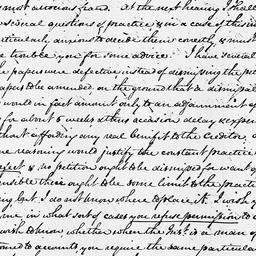 must across hand. At the next hearing I shall
several questions of practice & in a case of this
particularly anxious to decide them correctly & must
trouble you for some advice. I have several
papers were defective instead of dismissing the pet
papers to be amended, on the ground that a dismissal
would in fact amount only to an adjournment of
for about 6 weeks & thus occasion delay & expence
without affording any real benefit to the Creditor, a
same reasoning would justify the constant practice
& no petition ought to be dismissed for want of
sensible there ought to be some limit to the practice
but I do not know where to place it. I wish y
me in what sort of cases you refuse permission to a
wish to know whether when the Inst. is a man of
to accounts, you require the same particular